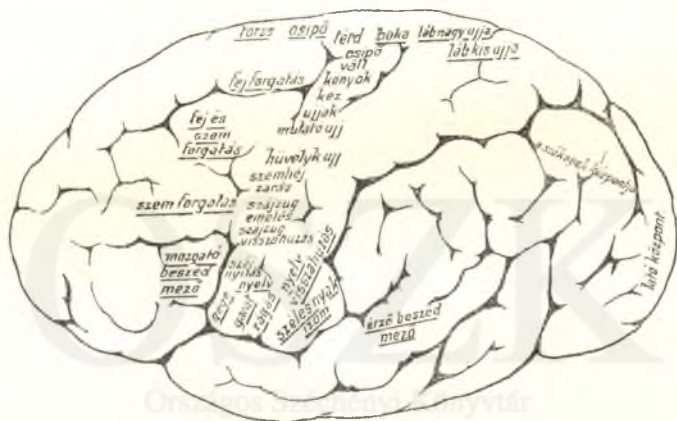 törzs csipő térd boka láb nagy ujja
láb kis ujja
csipő
váll
könyök
kéz
ujjak
mutató ujj
fej forgatás
fej és
szem
forgatás
hüvelyk ujj
szemhéj
zárás
szem forgatás
szájzug
emelés
szájzug
visszahúzás
mozgató
beszéd
mező
száj
nyitás
nyelv
gége
rágás
nyelv
visszahúzás
széles nyak
izom
érző beszéd
mező
központja
látó központ
OSZK
Országos Széchényi Könyvtár